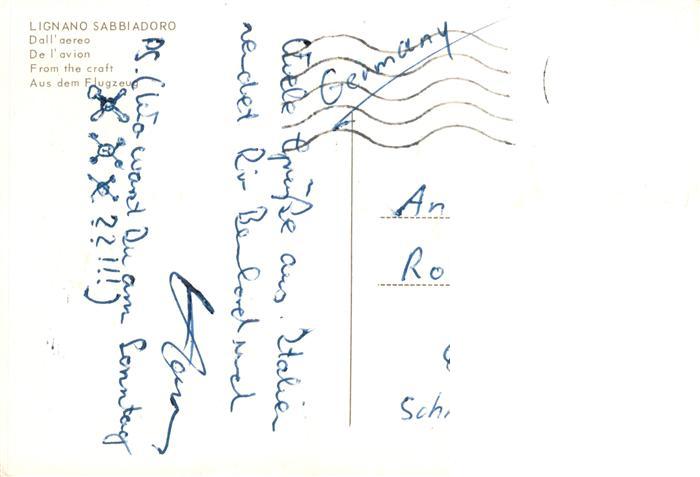 LIGNANO SABBIADORO
Dall'aereo
De l'avion
From the craft
Aus dem Flugzeug
Germany
Grüße aus Italien
sendet Dir Bernhard und
PS. (Wo warst Du am Sonntag
???!!!)
An
Ro
Sch